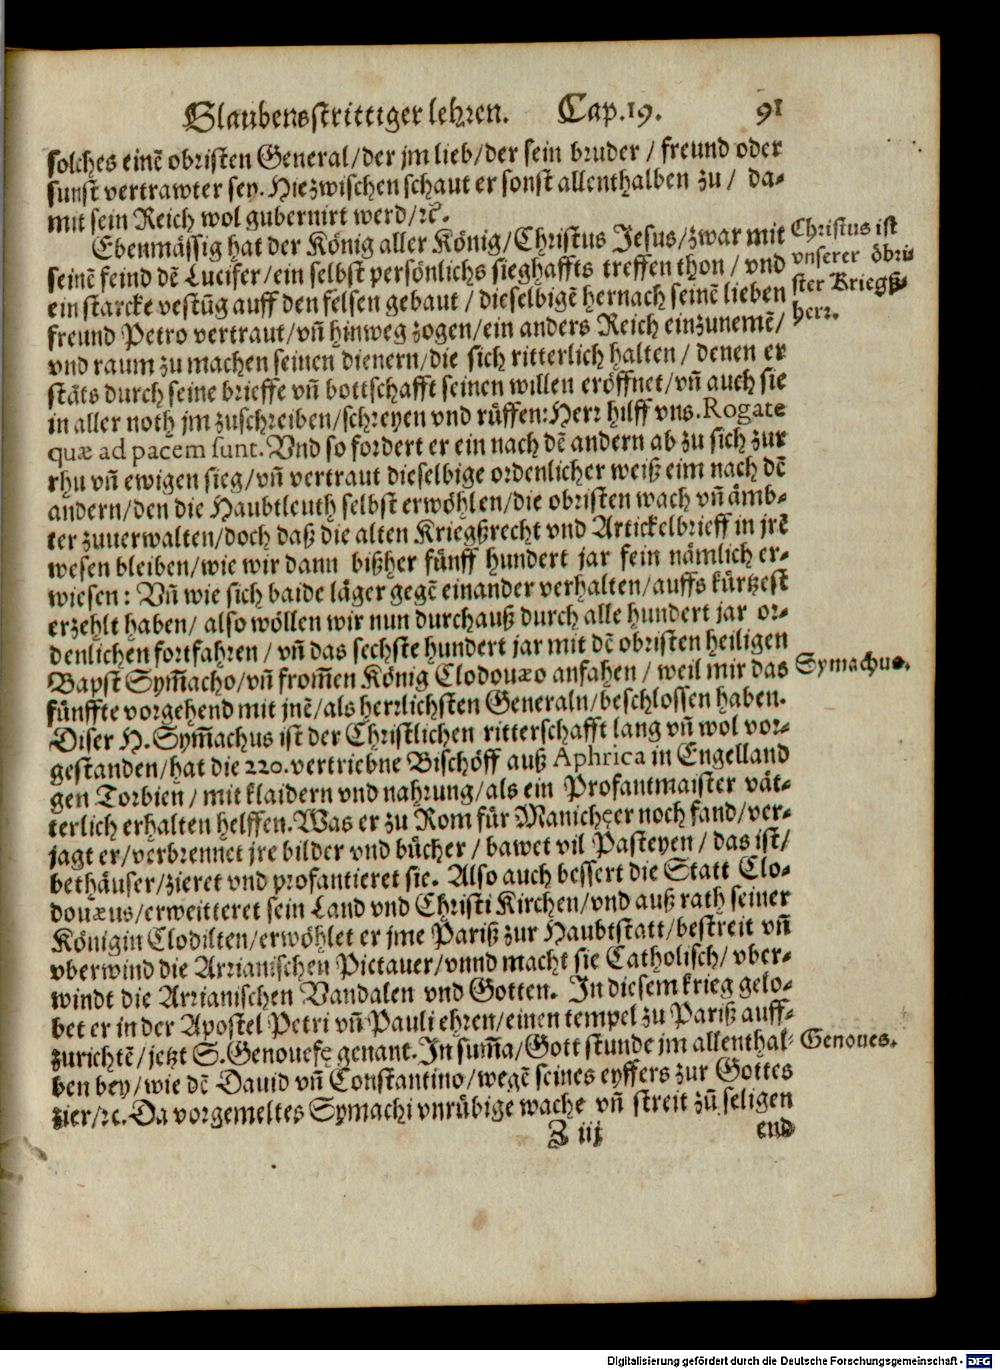 Glaubensstrittiger lehren. Cap.19. 91
solches einẽ obristen General/der jm lieb/der sein bruder / freund oder
sunst vertrawter sey. Hiezwischen schaut er sonst allenthalben zu / da-
mit sein Reich wol gubernirt werd/ꝛc.
Ebenmässig hat der König aller König/Christus Jesus/zwar mit
seinẽ feind dẽ Lucifer/ein selbst persönlichs sieghaffts treffen thon / vnd
ein starcke vestũg auff den felsen gebaut / dieselbigẽ hernach seinẽ lieben
freund Petro vertraut/vñ hinweg zogen/ein anders Reich einzunemẽ/
vnd raum zu machen seinen dienern/die sich ritterlich halten / denen er
stäts durch seine brieffe vñ bottschafft seinen willen eröffnet/vñ auch sie
in aller noth jm zuschreiben/schreyen vnd rüffen:Herr hilff vns.Rogate
quæ ad pacem sunt. Vnd so fordert er ein nach dẽ andern ab zu sich zur
rhu vñ ewigen sieg/vñ vertraut dieselbige ordenlicher weiß eim nach dẽ
andern/den die Haubtleuth selbst erwöhlen/die obristen wach vñ ämb-
ter zuuerwalten/doch daß die alten Kriegßrecht vnd Artickelbrieff in jrẽ
wesen bleiben/wie wir dann bißher fünff hundert jar fein nämlich er-
wiesen: Vñ wie sich baide läger gegẽ einander verhalten/auffs kürtzest
erzehlt haben/ also wöllen wir nun durchauß durch alle hundert jar or-
denlichen fortfahren / vñ das sechste hundert jar mit dẽ obristen heiligen
Bapst Sym̃acho/vñ from̃en König Clodouæo anfahen / weil mir das
fünffte vorgehend mit jnẽ/als herrlichsten Generaln/beschlossen haben.
Diser H. Sym̃achus ist der Christlichen ritterschafft lang vñ wol vor-
gestanden/hat die 220.vertriebne Bischöff auß Aphrica in Engelland
gen Torbien / mit klaidern vnd nahrung/als ein Profantmaister vät-
terlich erhalten helffen.Was er zu Rom für Manicheer noch fand/ver-
jagt er/verbrennet jre bilder vnd bücher / bawet vil Pasteyen / das ist/
bethäuser/zieret vnd profantieret sie. Also auch bessert die Statt Clo-
douæus/erweitteret sein Land vnd Christi Kirchen/vnd auß rath seiner
Königin Clodilten/erwöhlet er jme Pariß zur Haubtstatt/bestreit vñ
vberwind die Arrianischen Pictauer/vnnd macht sie Catholisch/ vber-
windt die Arrianischen Vandalen vnd Gotten. In diesem krieg gelo-
bet er in der Apostel Petri vñ Pauli ehren/einen tempel zu Pariß auff-
zurichtẽ/jetzt S.Genouefę genant.In sum̃a/Gott stunde jm allenthal-
ben bey/wie dẽ Dauid vñ Constantino/wegẽ seines eyffers zur Gottes
zier/ꝛc.Da vorgemeltes Symachi vnrübige wache vñ streit zũ seligen
Z iij end
Christus ist
vnserer öbri-
ster Kriegß-
herr.
Symachus.
Genoues.
Digitalisierung gefördert durch die Deutsche Forschungsgemeinschaft - DFG